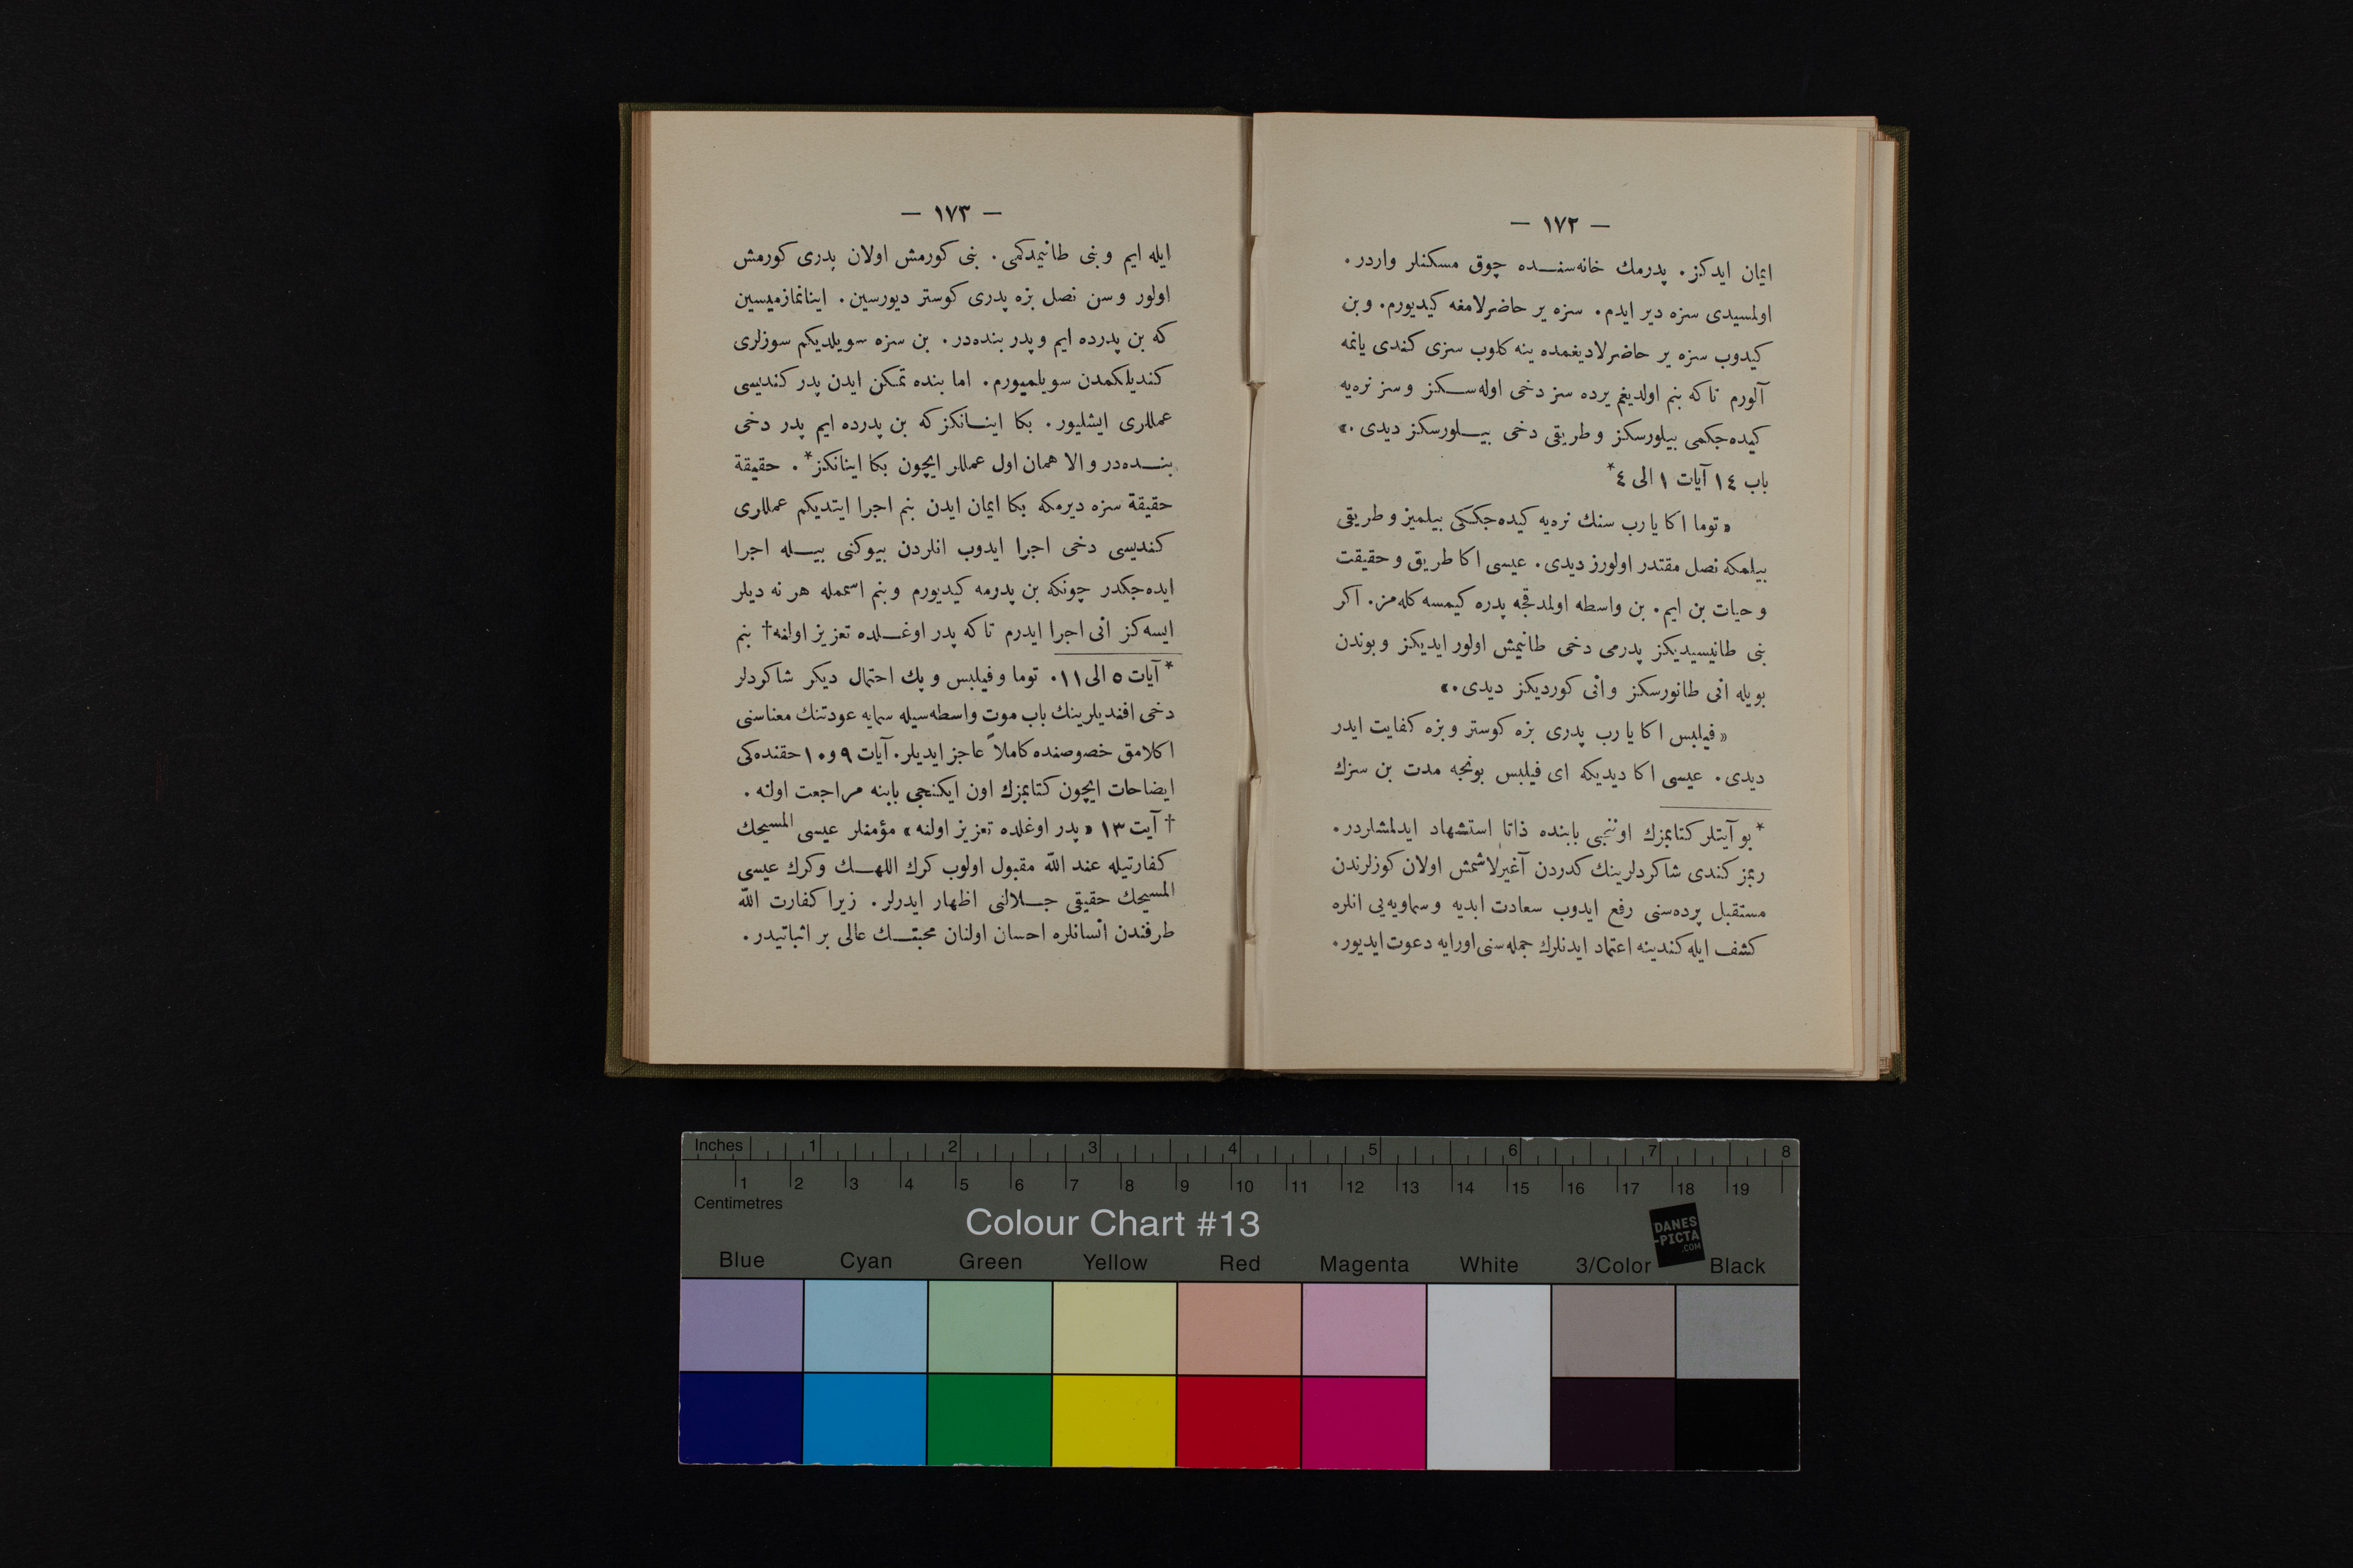 — ١٧٢ —
ایمان ایدکز. پدرمك خانه‌سنده چوق مسکنلر واردر.
اولمسیدی سزه دیر ایدم. سزه یر حاضرلامغه کیدیورم. وبن
کیدوب سزه یر حاضرلادیغمده ینه کلوب سزی کندی یانمه
آلورم تاکه بنم اولدیغم یرده سز دخی اوله‌سکز وسز نره‌یه
کیده‌جکمی بیلورسکز وطریقی دخی بیلورسکز دیدی.»
باب ١٤ آیات ١ الی ٤*
«توما اکا یا رب سنك نره‌یه کیده‌جککی بیلمیز وطریقی
بیلمکه نصل مقتدر اولورز دیدی. عیسی اکا طریق وحقیقت
وحیات بن ایم. بن واسطه اولمدقجه پدره کیمسه کله‌مز. اکر
بنی طانیسیدیکز پدرمی دخی طانیمش اولور ایدیکز وبوندن
بویله انی طانورسکز وانی کوردیکز دیدی.»
«فیلبس اکا یا رب پدری بزه کوستر وبزه کفایت ایدر
دیدی. عیسی اکا دیدیکه ای فیلبس بونجه مدت بن سزك
* بو آیتلر کتابمزك اوننجی بابنده ذاتا استشهاد ایدلمشاردر.
ربمز کندی شاکردلرینك کدردن آغیرلاشمش اولان کوزلرندن
مستقبل پرده‌سنی رفع ایدوب سعادت ابدیه وسماویه‌یی انلره
کشف ایله کندینه اعتماد ایدنلرك جمله‌سنی اورایه دعوت ایدیور.
— ١٧٣ —
ایله ایم وبنی طانیمدکمی. بنی کورمش اولان پدری کورمش
اولور وسن نصل بزه پدری کوستر دیورسین. اینانمازمیسین
که بن پدرده ایم وپدر بنده‌در. بن سزه سویلدیکم سوزلری
کندیلکمدن سویلمیورم. اما بنده تمکن ایدن پدر کندیسی
عمللری ایشلیور. بکا اینانکز که بن پدرده ایم پدر دخی
بنده‌در والا همان اول عمللر ایچون بکا اینانکز*. حقیقة
حقیقة سزه دیرمکه بکا ایمان ایدن بنم اجرا ایتدیکم عمللری
کندیسی دخی اجرا ایدوب انلردن بیوکنی بیله اجرا
ایده‌جکدر چونکه بن پدرمه کیدیورم وبنم اسممله هر نه دیلر
ایسه‌کز انی اجرا ایدرم تاکه پدر اوغلده تعزیز اولنه† بنم
* آیات ٥ الی ١١. توما وفیلبس وپك احتمال دیکر شاکردلر
دخی افندیلرینك باب موت واسطه‌سیله سمایه عودتنك معناسنی
اکلامق خصوصنده کاملاً عاجز ایدیلر. آیات ٩ و١٠ حقنده‌کی
ایضاحات ایچون کتابمزك اون ایکنجی بابنه مراجعت اولنه.
† آیت ١٣ «پدر اوغلده تعزیز اولنه» مؤمنلر عیسی المسیحك
کفارتیله عند الله مقبول اولوب کرك اللهك وکرك عیسی
المسیحك حقیقی جلالنی اظهار ایدرلر. زیرا کفارت الله
طرفندن انسانلره احسان اولنان محبتك عالی بر اثباتیدر.
Inches 1 2 3 4 5 6 7 8
1 2 3 4 5 6 7 8 9 10 11 12 13 14 15 16 17 18 19
Centimetres
Colour Chart #13
DANES
-PICTA
.COM
Blue Cyan Green Yellow Red Magenta White 3/Color Black